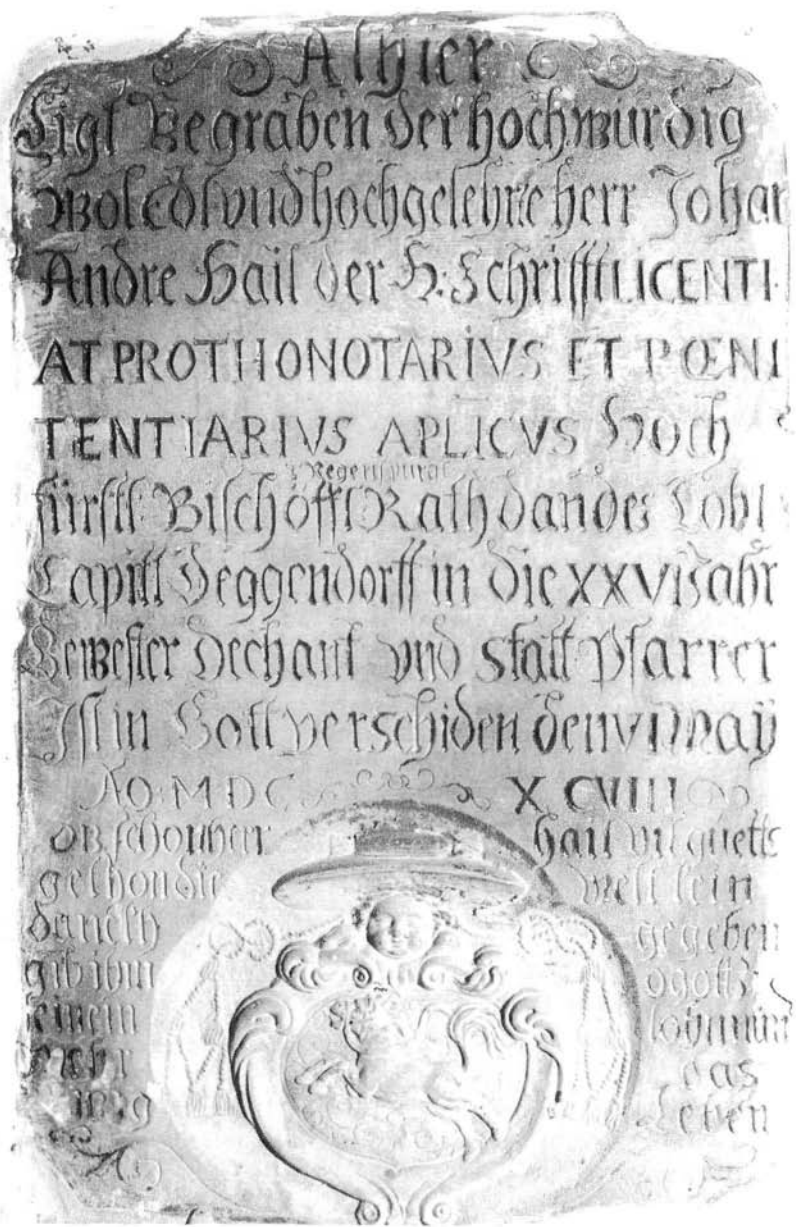 Alhier
Ligt Begraben der hochwürdig
WolEdl vnd hochgelehrte herr Johan
Andre Hail der H: Schrifft LICENTI
AT PROTHONOTARIVS ET PŒNI
TENTIARIVS APLICVS Hoch
Regenspurg
fürstl: Bischöffl Rath dan des Lobl
Capitl Deggendorff in die XXVI Jahr
Gewester Dechant vnd Statt Pfarrer
Ist in Gott verschiden den VI May
AO: MDC XCVIII
ob schon herr hail vil guetts
gethon die welt sein
gegeben
gib ihm o gott
seinem lohn und
das
Leben